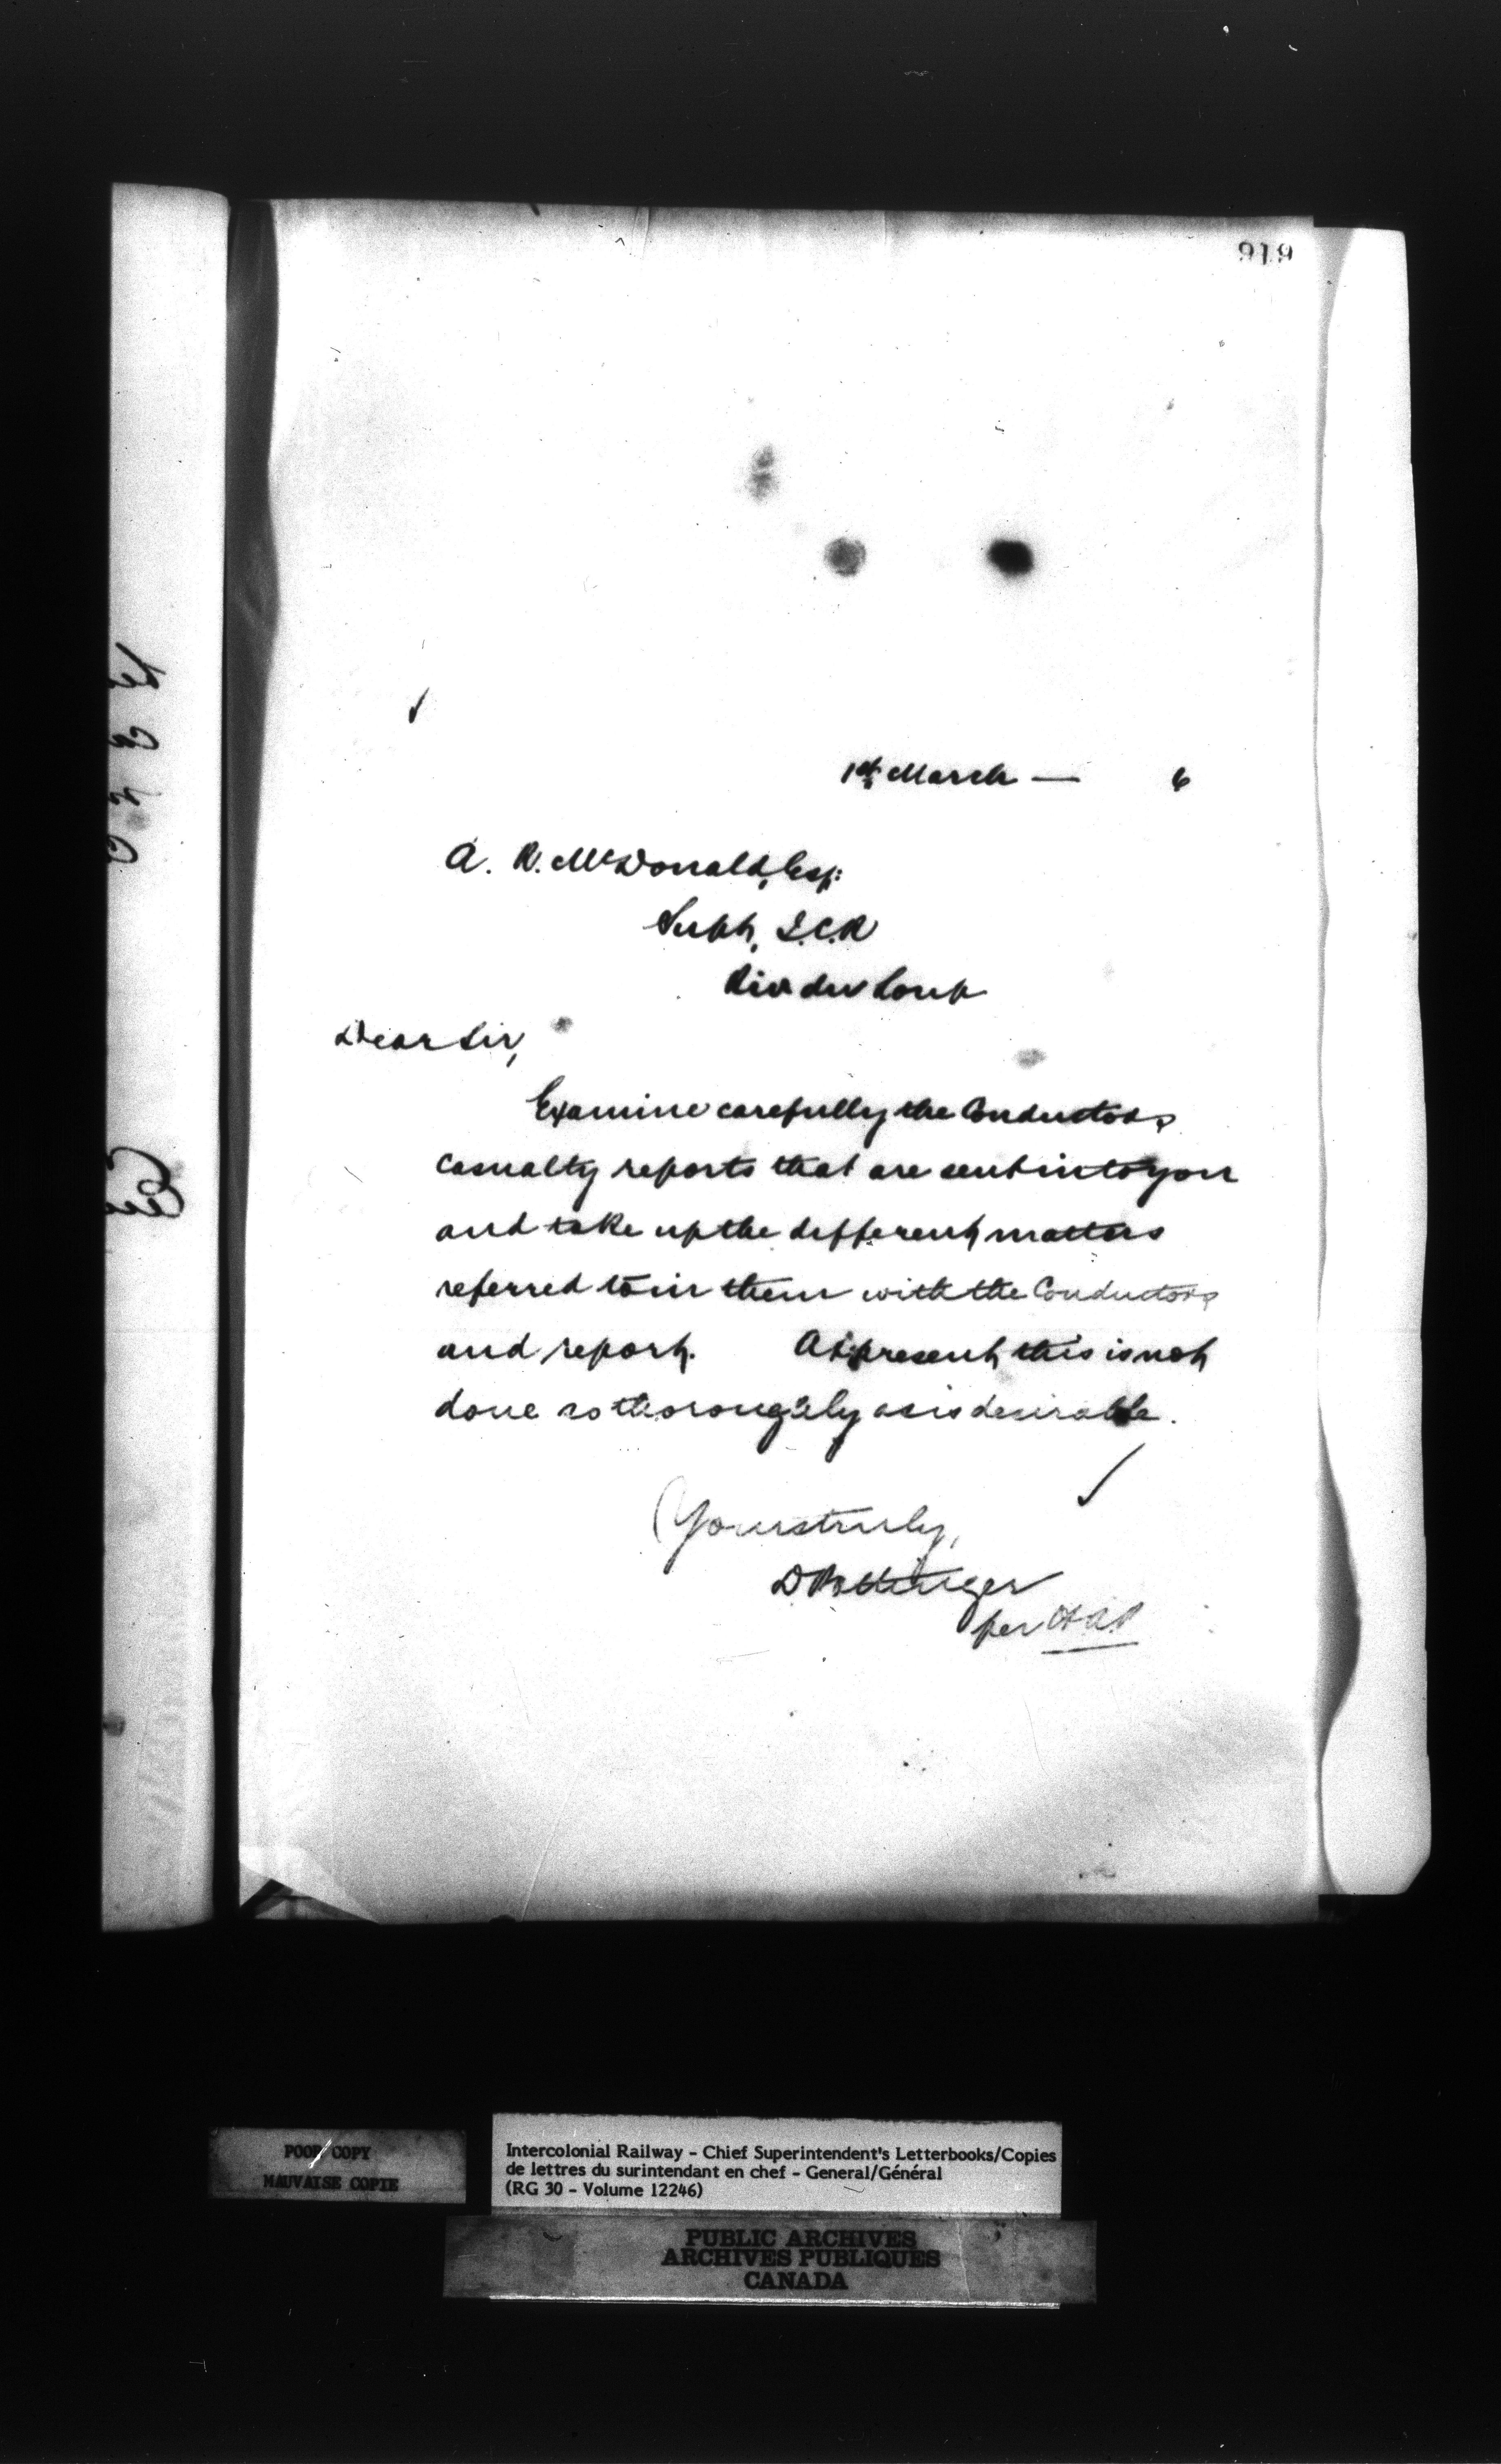 919
1st March — 6
A. R. McDonald, Esq:
Supt, I.C.R
Riv du Loup
Dear Sir,
Examine carefully the Conductors
casualty reports that are sent in to you
and take up the different matters
referred to in them with the Conductors
and report. At present this is not
done so thoroughly as is desirable.
Yours truly,
D Pottinger
per
POOR COPY
MAUVAISE COPIE
Intercolonial Railway - Chief Superintendent's Letterbooks/Copies
de lettres du surintendant en chef - General/Général
(RG 30 - Volume 12246)
PUBLIC ARCHIVES
ARCHIVES PUBLIQUES
CANADA